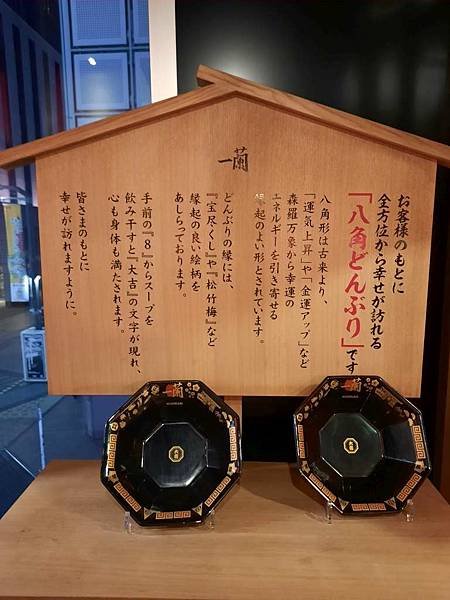 一蘭
お客様のもとに
全方位から幸せが訪れる
「八角どんぶり」です
八角形は古来より、
「運気上昇」や「金運アップ」など
森羅万象から幸運の
エネルギーを引き寄せる
起のよい形とされています。
どんぶりの縁には、
『宝尽くし』や『松竹梅』など
縁起の良い絵柄を
あしらっております。
手前の『8』からスープを
飲み干すと『大吉』の文字が現れ、
心も身体も満たされます。
皆さまのもとに
幸せが訪れますように。
一蘭
一蘭